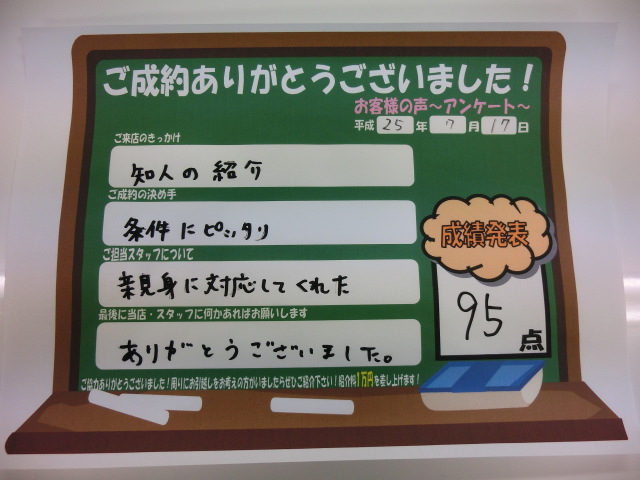 ご成約ありがとうございました!
お客様の声~アンケート~
平成 25 年 7 月 17 日
ご来店のきっかけ
知人の紹介
ご成約の決め手
条件にピッタリ
ご担当スタッフについて
親身に対応してくれた
最後に当店・スタッフに何かあればお願いします
ありがとうございました。
成績発表
95点
ご協力ありがとうございました!周りにお引越しをお考えの方がいましたらぜひご紹介下さい!紹介料1万円を差し上げます!